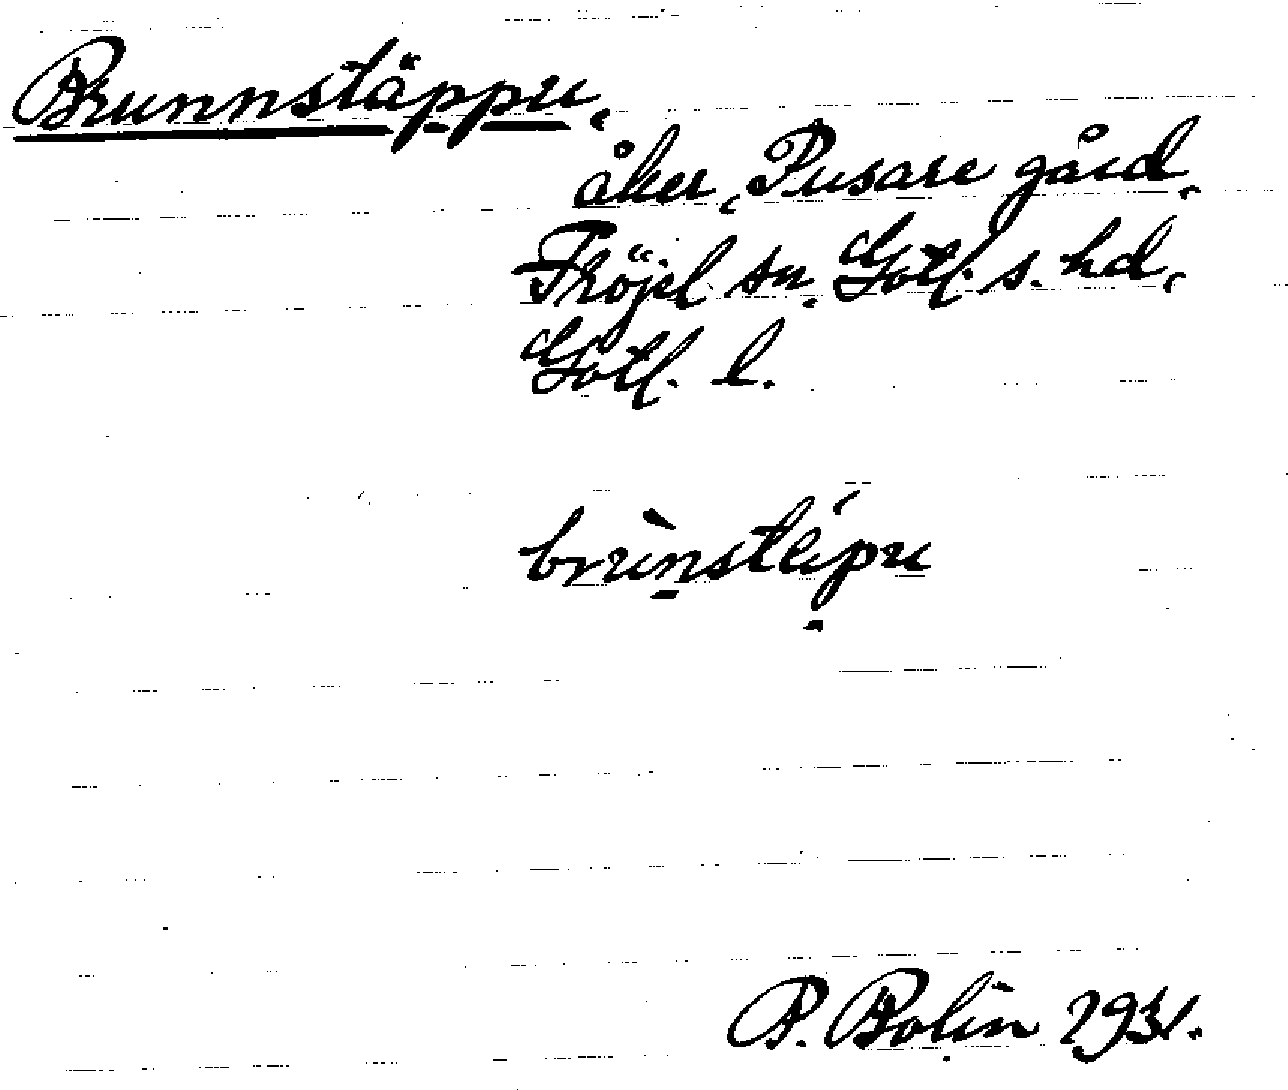 Brunnstäppu,
åker, Pusare gård,
Fröjel sn, Gotl. s. hd,
Gotl. l.
brùnstépu
P. Bolin 1931.